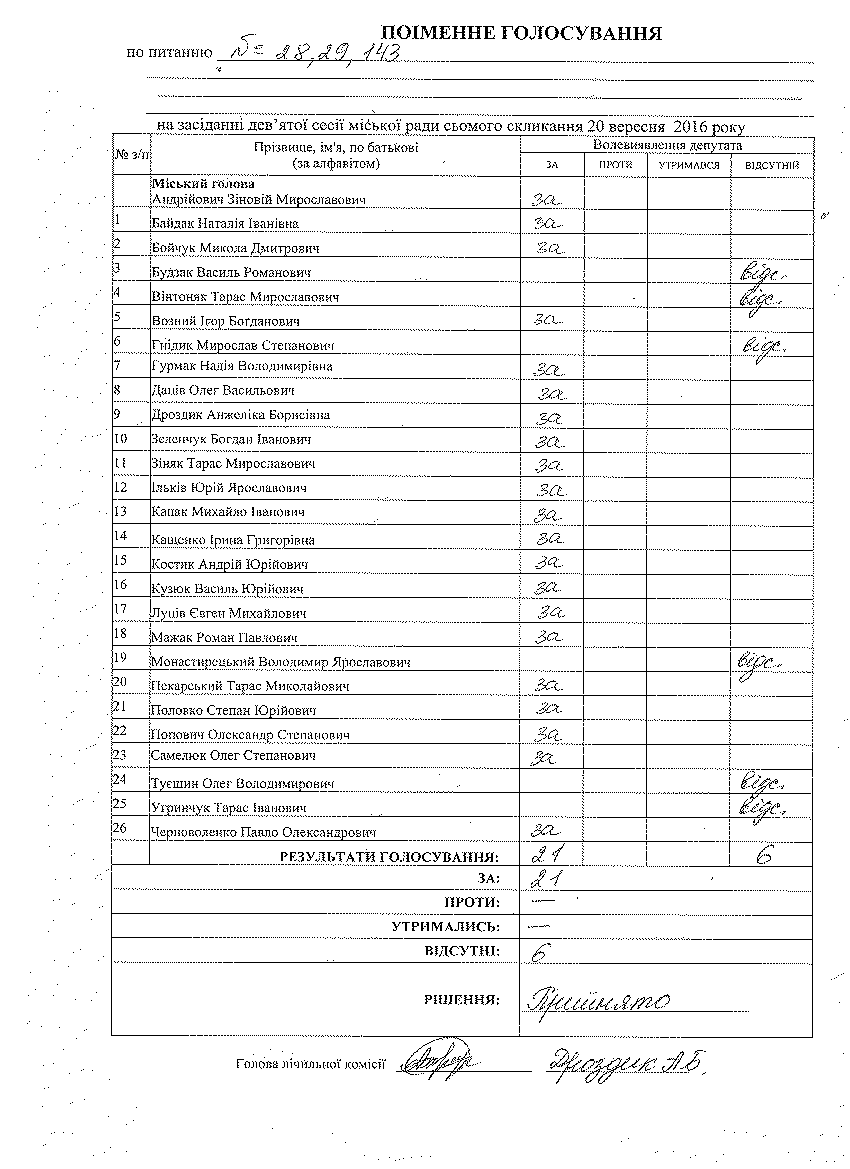 ПОІМЕННЕ ГОЛОСУВАННЯ
по питанню № 28, 29, 143
на засіданні дев’ятої сесії міської ради сьомого скликання 20 вересня 2016 року
№ з/п Прізвище, ім'я, по батькові (за алфавітом) Волевиявлення депутата
ЗА ПРОТИ УТРИМАВСЯ ВІДСУТНІЙ
Міський голова
Андрійович Зіновій Мирославович за
1 Байдак Наталія Іванівна за
2 Бойчук Микола Дмитрович за
3 Будзак Василь Романович відс.
4 Вінтоняк Тарас Мирославович відс.
5 Возний Ігор Богданович за
6 Гнідик Мирослав Степанович відс.
7 Гурмак Надія Володимирівна за
8 Даців Олег Васильович за
9 Дроздик Анжеліка Борисівна за
10 Зеленчук Богдан Іванович за
11 Зіняк Тарас Мирославович за
12 Ільків Юрій Ярославович за
13 Капак Михайло Іванович за
14 Кащенко Ірина Григорівна за
15 Костяк Андрій Юрійович за
16 Кузюк Василь Юрійович за
17 Луців Євген Михайлович за
18 Мажак Роман Павлович за
19 Монастирецький Володимир Ярославович відс.
20 Пекарський Тарас Миколайович за
21 Половко Степан Юрійович за
22 Попович Олександр Степанович за
23 Самелюк Олег Степанович за
24 Туєшин Олег Володимирович відс.
25 Угринчук Тарас Іванович відс.
26 Черноволенко Павло Олександрович за
РЕЗУЛЬТАТИ ГОЛОСУВАННЯ: 21 6
ЗА: 21
ПРОТИ: —
УТРИМАЛИСЬ: —
ВІДСУТНІ: 6
РІШЕННЯ: Прийнято
Голова лічильної комісії Дроздик А.Б.